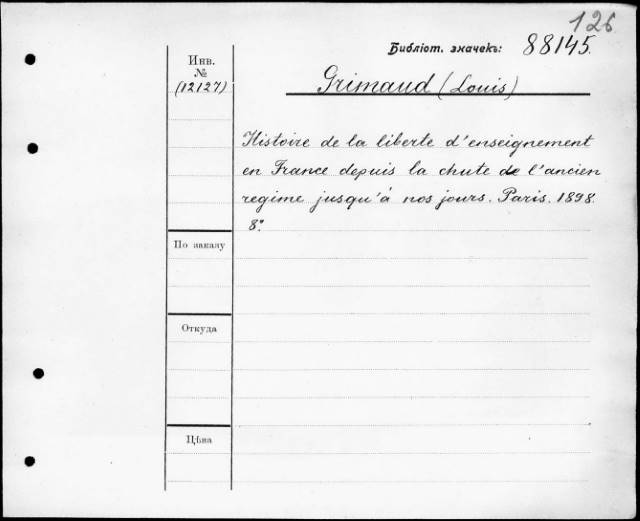 126
Библіот. значекъ: 88145.
Инв.
№
(12127)
Grimaud (Louis)
Histoire de la liberte d'enseignement
en France depuis la chute de l'ancien
regime jusqu'à nos jours. Paris. 1898.
8°.
По заказу
Откуда
Цѣна